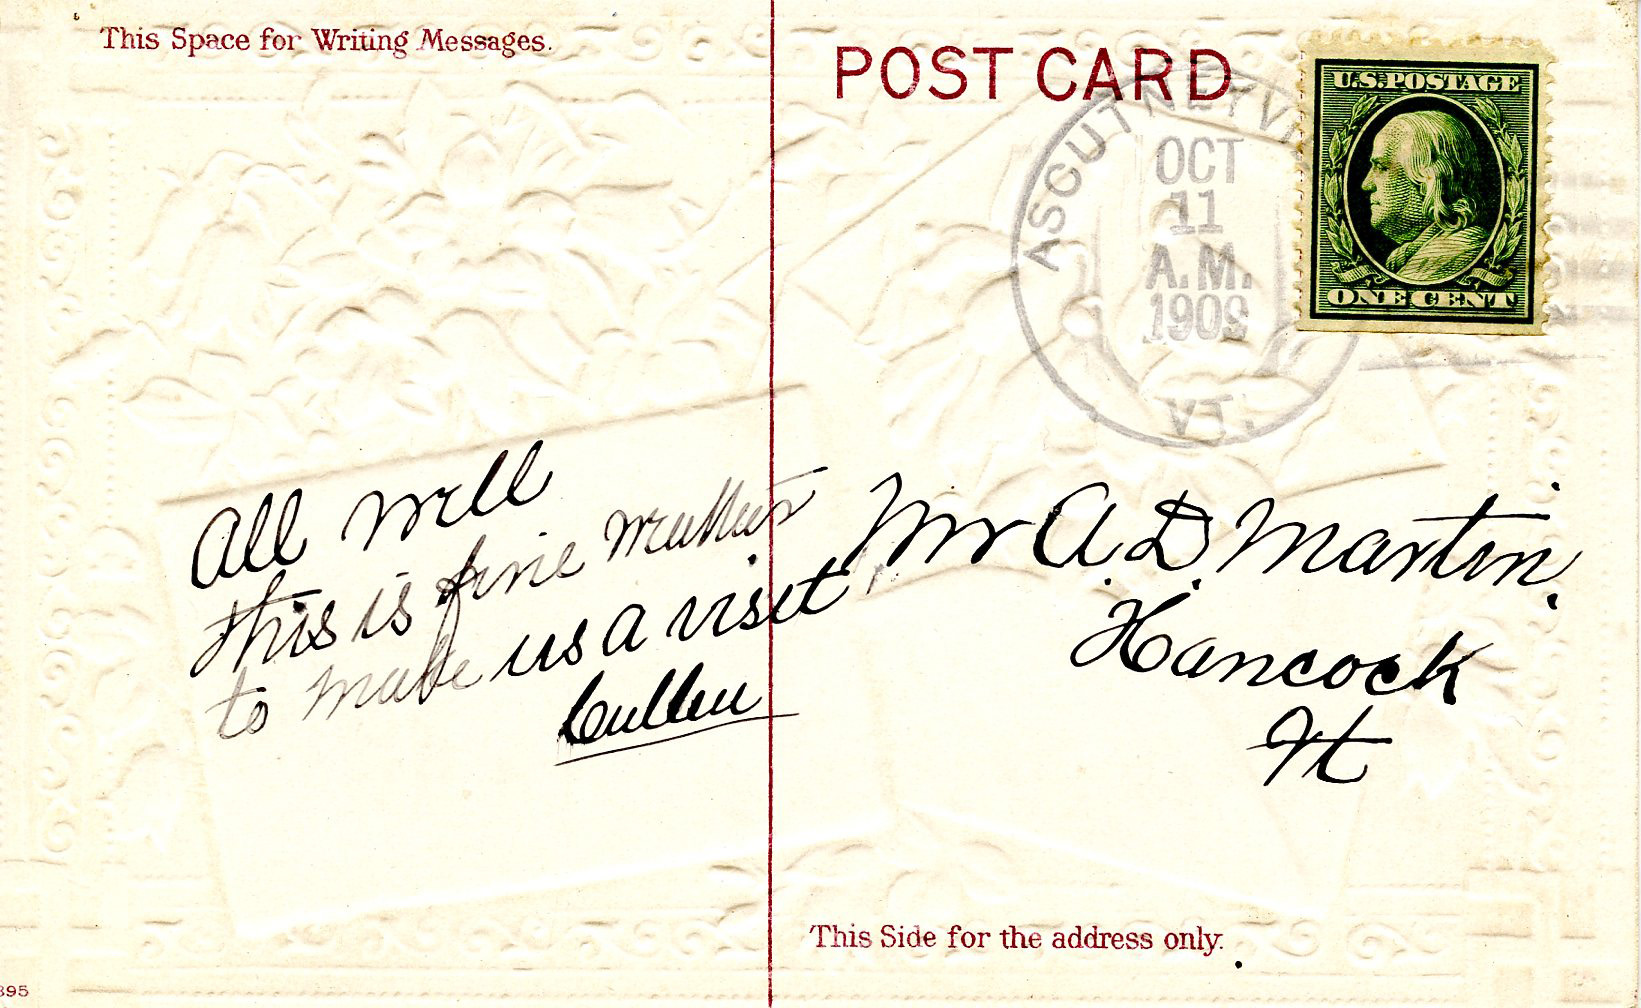 This Space for Writing Messages.
POST CARD
U.S. POSTAGE
ONE CENT
ASCUTNEYVI
OCT
11
A.M.
1909
VT.
All well
this is fine
to make us a visit
Cullen
Mr A. D. Martin.
Hancock
Vt
This Side for the address only.
395